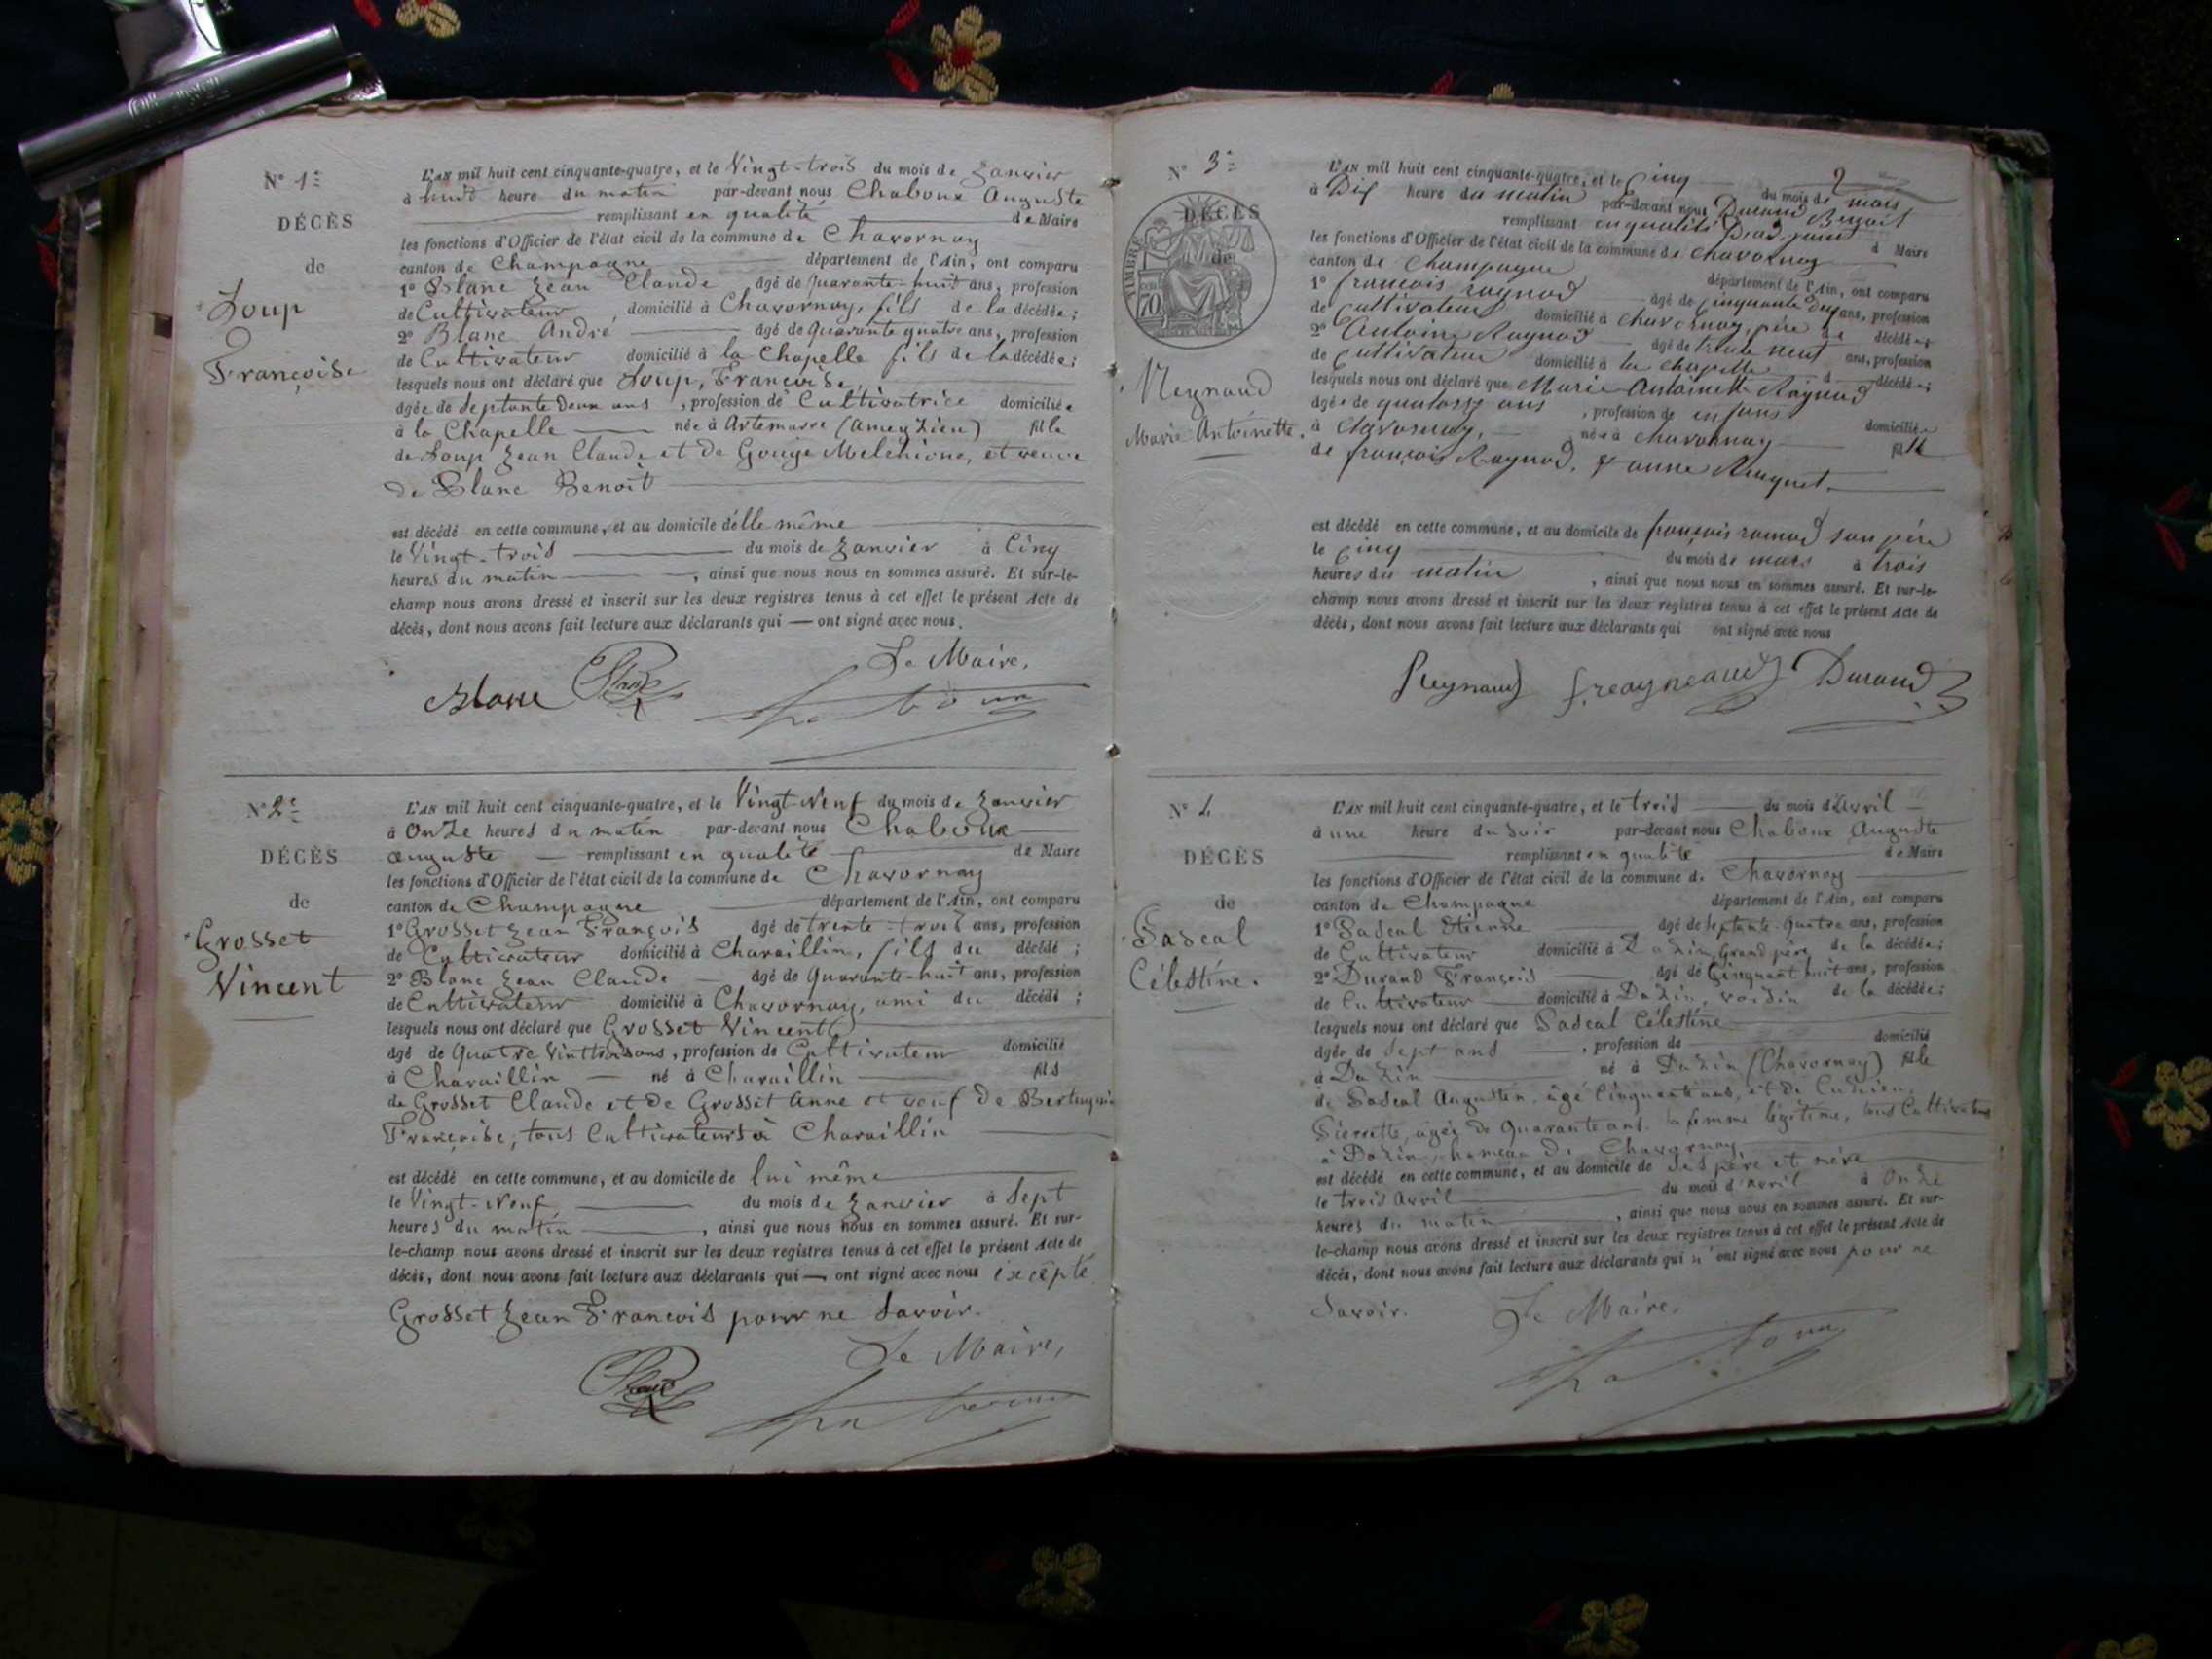 N° 1
DÉCÈS
de
Loup
Françoise
L'AN mil huit cent cinquante-quatre, et le Vingt-trois du mois de Janvier
à huit heure du matin par-devant nous Chaboux Auguste
remplissant en qualité de Maire
les fonctions d'Officier de l'état civil de la commune de Chavornay
canton de Champagne département de l'Ain, ont comparu
1° Blanc Jean Claude âgé de Quarante-huit ans, profession
de Cultivateur domicilié à Chavornay, fils de la décédée;
2° Blanc André âgé de Quarante quatre ans, profession
de Cultivateur domicilié à la Chapelle fils de la décédée;
lesquels nous ont déclaré que Loup, Françoise,
âgée de Septante Deux ans, profession de Cultivatrice domiciliée
à la Chapelle née à Artemarre (Ameyzieu) fille
de Loup Jean Claude et de Gouge Melchione, et veuve
de Blanc Benoit
est décédé en cette commune, et au domicile d'elle même
le Vingt-trois du mois de Janvier à Cinq
heures du matin, ainsi que nous nous en sommes assuré. Et sur-le-
champ nous avons dressé et inscrit sur les deux registres tenus à cet effet le présent Acte de
décès, dont nous avons fait lecture aux déclarants qui — ont signé avec nous.
Le Maire,
Blanc Blanc
N° 2
DÉCÈS
de
Grosset
Vincent
L'AN mil huit cent cinquante-quatre, et le Vingt-Neuf du mois de Janvier
à Onze heures du matin par-devant nous Chaboux
Auguste — remplissant en qualité de Maire
les fonctions d'Officier de l'état civil de la commune de Chavornay
canton de Champagne département de l'Ain, ont comparu
1° Grosset Jean François âgé de trente-trois ans, profession
de Cultivateur domicilié à Charaillin, fils du décédé;
2° Blanc Jean Claude âgé de Quarante-huit ans, profession
de Cultivateur domicilié à Chavornay, ami du décédé;
lesquels nous ont déclaré que Grosset Vincent
âgé de Quatre Vint trois ans, profession de Cultivateur domicilié
à Charaillin — né à Charaillin fils
de Grosset Claude et de Grosset Anne et veuf de
Françoise, tous Cultivateurs à Charaillin
est décédé en cette commune, et au domicile de lui même
le Vingt-Neuf du mois de Janvier à Sept
heures du matin, ainsi que nous nous en sommes assuré. Et sur-
le-champ nous avons dressé et inscrit sur les deux registres tenus à cet effet le présent Acte de
décès, dont nous avons fait lecture aux déclarants qui — ont signé avec nous excepté
Grosset Jean François pour ne savoir.
Le Maire,
Blanc
2
N° 3
DÉCÈS
de
TIMBRE
70
Reynaud
Marie Antoinette.
L'AN mil huit cent cinquante-quatre, et le cinq du mois de mars
à Dix heure du matin par-devant nous Durand Benoit
remplissant en qualité d'adjoint d Maire
les fonctions d'Officier de l'état civil de la commune de Chavornay
canton de Champagne département de l'Ain, ont comparu
1° françois raynod âgé de cinquante deux ans, profession
de cultivateur domicilié à chavornay, père de décédée
2° Antoine Raynod âgé de trente neuf ans, profession
de cultivateur domicilié à la chapelle d décédée;
lesquels nous ont déclaré que Marie Antoinette Raynod
âgée de quatorze ans, profession de enfans domiciliée
à Chavornay, née à chavornay fille
de françois Raynod, & anne
est décédé en cette commune, et au domicile de françois raynod son père
le cinq du mois de mars à trois
heures du matin, ainsi que nous nous en sommes assuré. Et sur-le-
champ nous avons dressé et inscrit sur les deux registres tenus à cet effet le présent Acte de
décès, dont nous avons fait lecture aux déclarants qui ont signé avec nous
Reynaud f. reayneaud Durand
N° 4
DÉCÈS
de
Pascal
Célestine.
L'AN mil huit cent cinquante-quatre, et le trois du mois d'Avril
à une heure du soir par-devant nous Chaboux Auguste
remplissant en qualité de Maire
les fonctions d'Officier de l'état civil de la commune de Chavornay
canton de Champagne département de l'Ain, ont comparu
1° Pascal Etienne âgé de Septante-Quatre ans, profession
de Cultivateur domicilié à Dazin, Grand père de la décédée;
2° Durand François âgé de Cinquant huit ans, profession
de Cultivateur domicilié à Dazin, voisin de la décédée;
lesquels nous ont déclaré que Pascal Célestine
âgée de Sept ans, profession de domicilié
à Dazin né à Dazin (Chavornay) fille
de Pascal Augustin, âgé Cinquante ans, et de
Pierrette, agée de Quarante ans. Sa femme légitime, tous Cultivateurs
à Dazin, hameau de Chavornay,
est décédé en cette commune, et au domicile de ses père et mère
le trois Avril du mois d'Avril à Onze
heures du matin, ainsi que nous nous en sommes assuré. Et sur-
le-champ nous avons dressé et inscrit sur les deux registres tenus à cet effet le présent Acte de
décès, dont nous avons fait lecture aux déclarants qui n'ont signé avec nous pour ne
Savoir.
Le Maire,